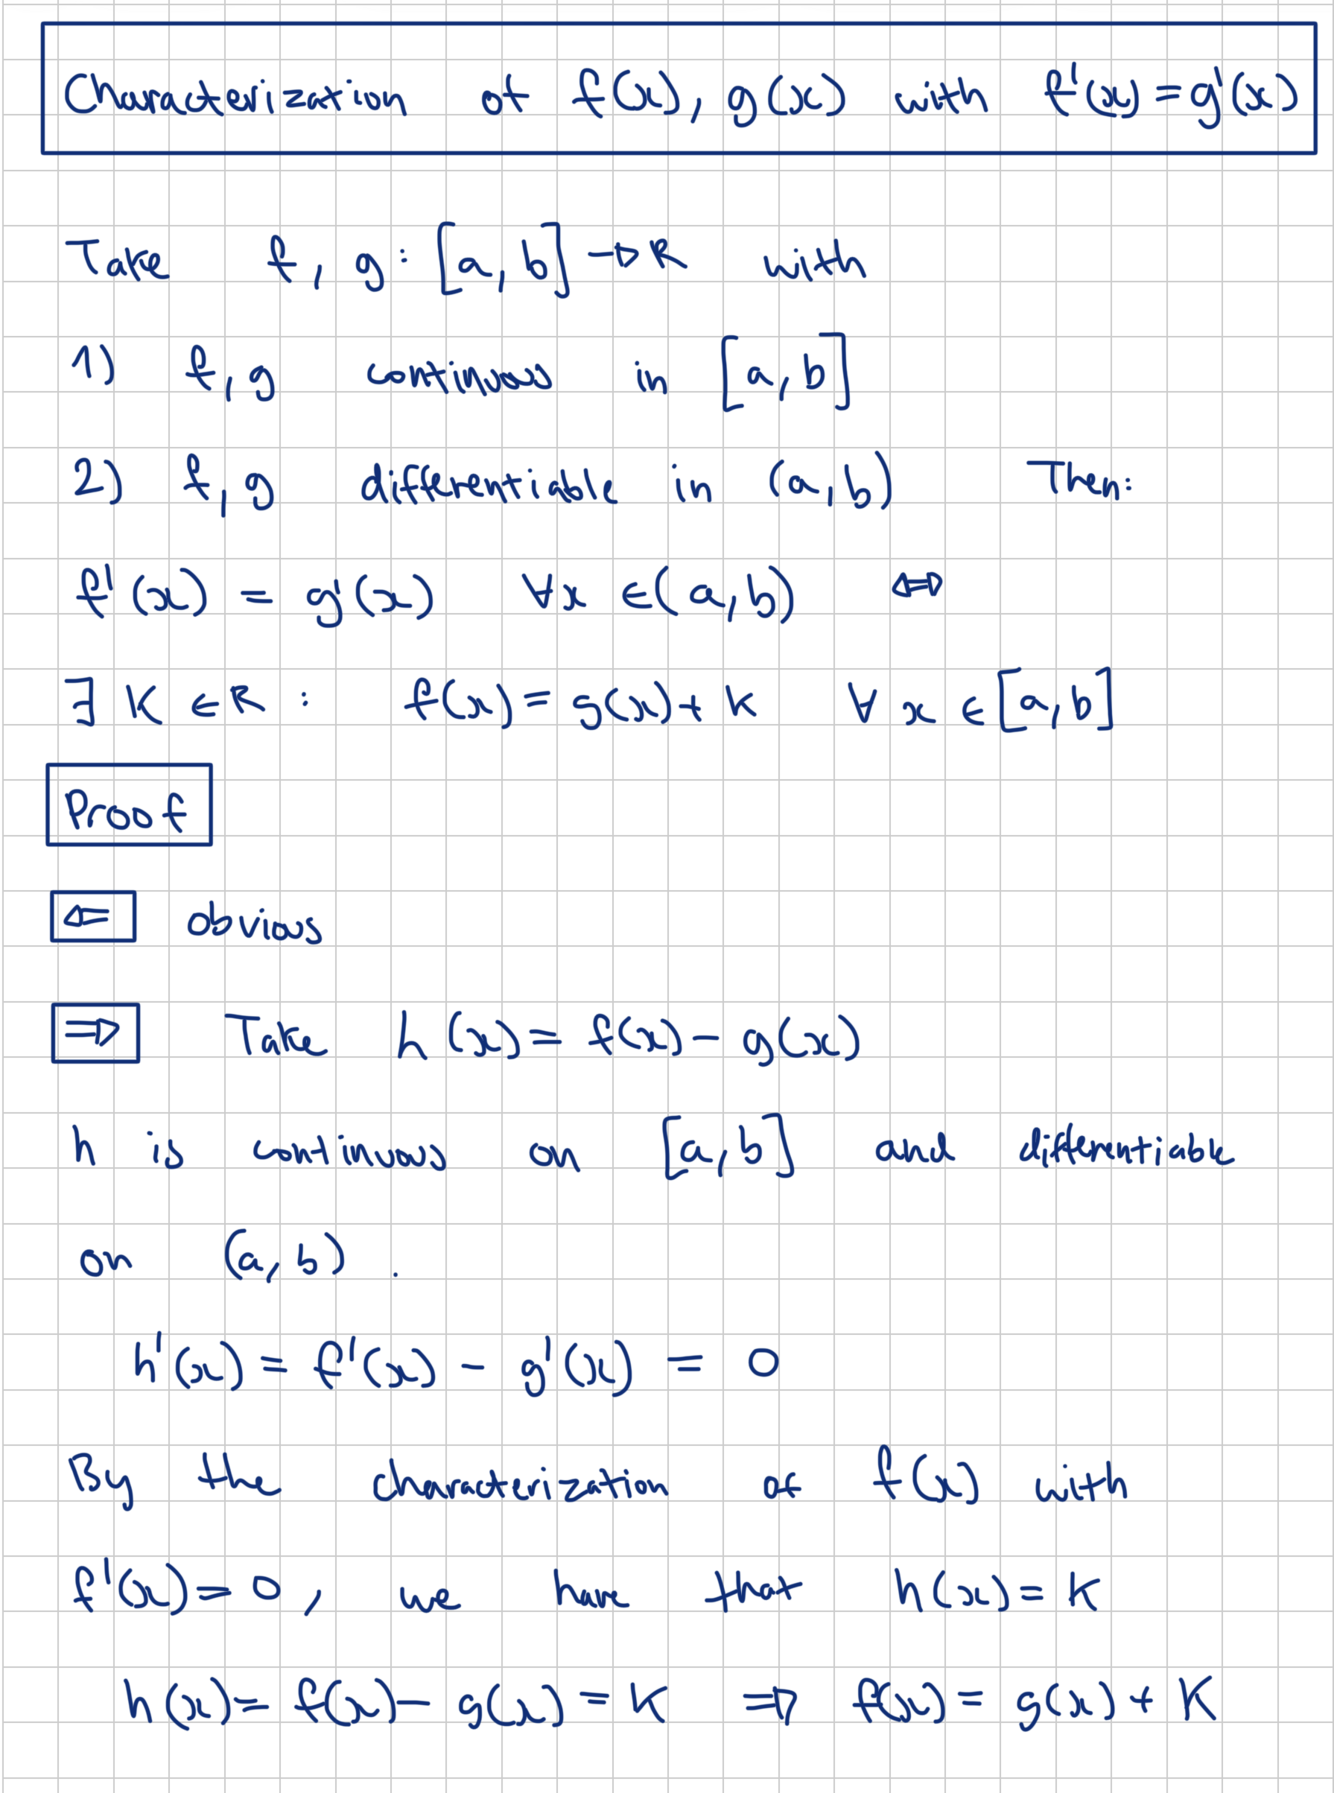 Characterization of f(x), g(x) with f'(x) = g'(x)
Take f, g : [a, b] → R with
1) f, g continuous in [a, b]
2) f, g differentiable in (a, b) Then:
f'(x) = g'(x) ∀x ∈ (a, b) ⇔
∃ K ∈ R : f(x) = g(x) + K ∀ x ∈ [a, b]
Proof
⇐ obvious
⇒ Take h(x) = f(x) - g(x)
h is continuous on [a, b] and differentiable
on (a, b) .
h'(x) = f'(x) - g'(x) = 0
By the characterization of f(x) with
f'(x) = 0, we have that h(x) = K
h(x) = f(x) - g(x) = K ⇒ f(x) = g(x) + K